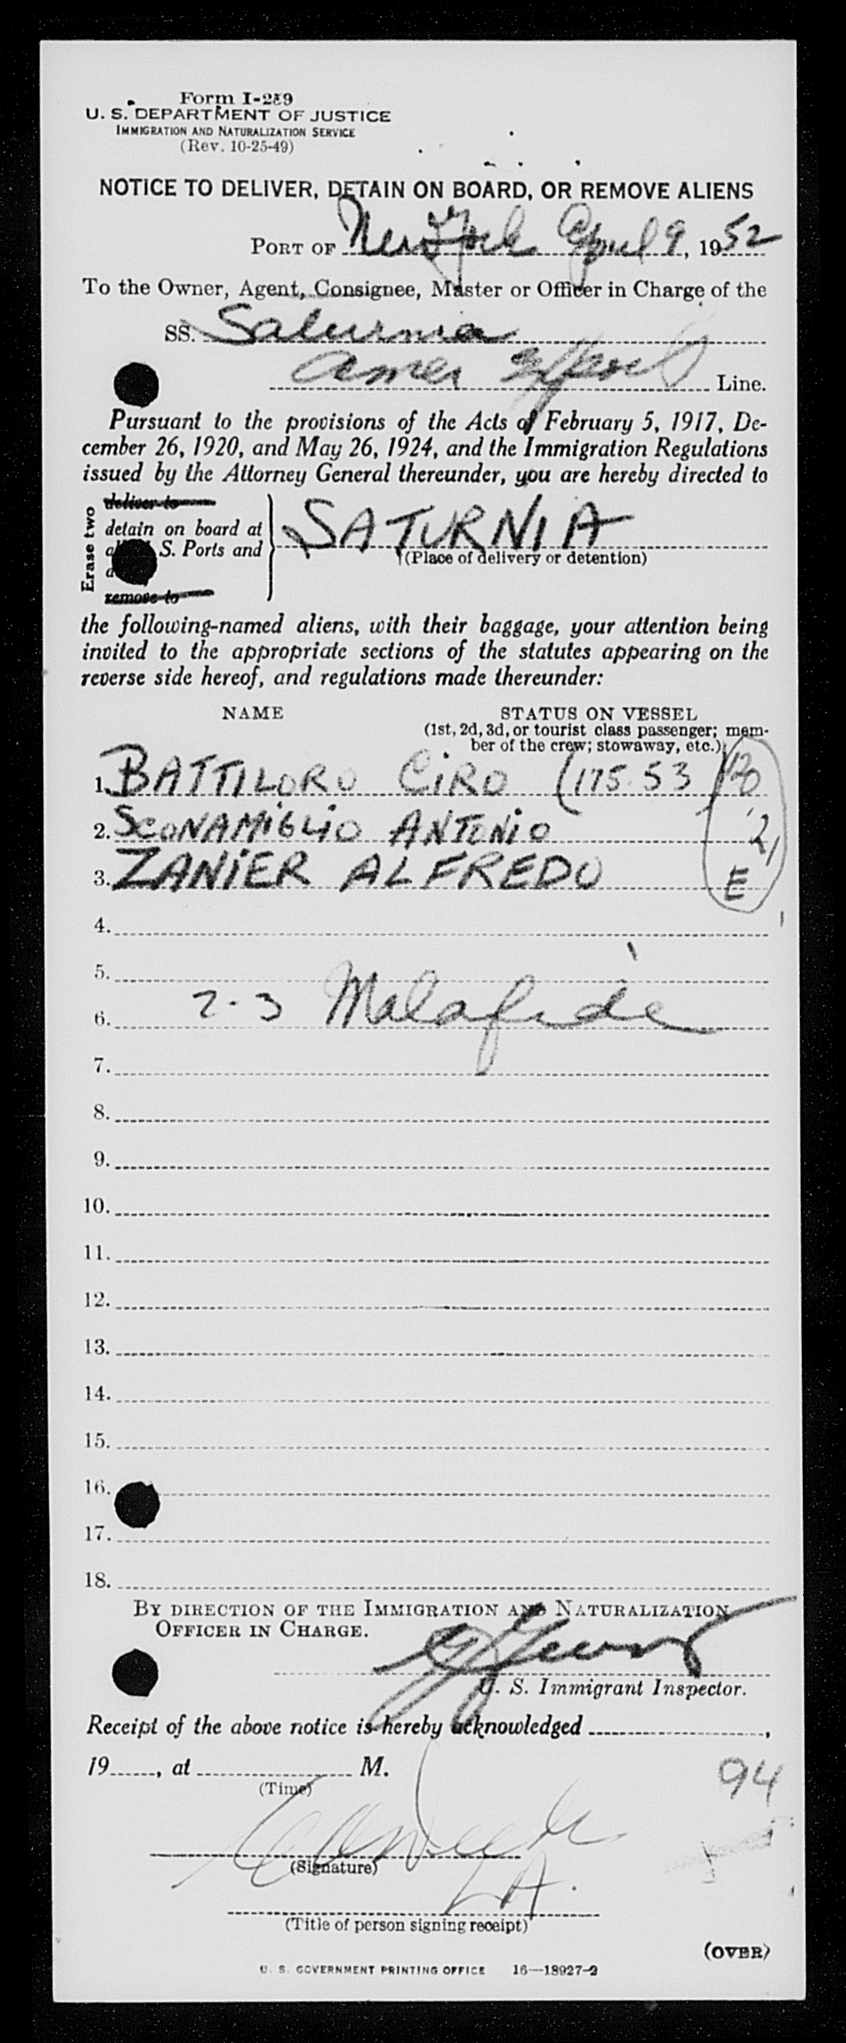 Form I-259
U. S. DEPARTMENT OF JUSTICE
IMMIGRATION AND NATURALIZATION SERVICE
(Rev. 10-25-49)
NOTICE TO DELIVER, DETAIN ON BOARD, OR REMOVE ALIENS
PORT OF New York April 9, 1952
To the Owner, Agent, Consignee, Master or Officer in Charge of the
SS. Saturnia
Amer Export Line.
Pursuant to the provisions of the Acts of February 5, 1917, De-
cember 26, 1920, and May 26, 1924, and the Immigration Regulations
issued by the Attorney General thereunder, you are hereby directed to
Erase two
deliver to
detain on board at
S. Ports and
remove to
SATURNIA
(Place of delivery or detention)
the following-named aliens, with their baggage, your attention being
invited to the appropriate sections of the statutes appearing on the
reverse side hereof, and regulations made thereunder:
NAME STATUS ON VESSEL
(1st, 2d, 3d, or tourist class passenger; mem-
ber of the crew; stowaway, etc.)
1. BATTILORO CIRO (175.53) 120
2. SCONAMIGLIO ANTONIO 21
3. ZANIER ALFREDO E
4.
5.
2-3 Malafide
6.
7.
8.
9.
10.
11.
12.
13.
14.
15.
16.
17.
18.
BY DIRECTION OF THE IMMIGRATION AND NATURALIZATION
OFFICER IN CHARGE.
U. S. Immigrant Inspector.
Receipt of the above notice is hereby acknowledged ,
19 , at M.
(Time)
94
(Signature)
(Title of person signing receipt)
(OVER)
U. S. GOVERNMENT PRINTING OFFICE 16—18927-2